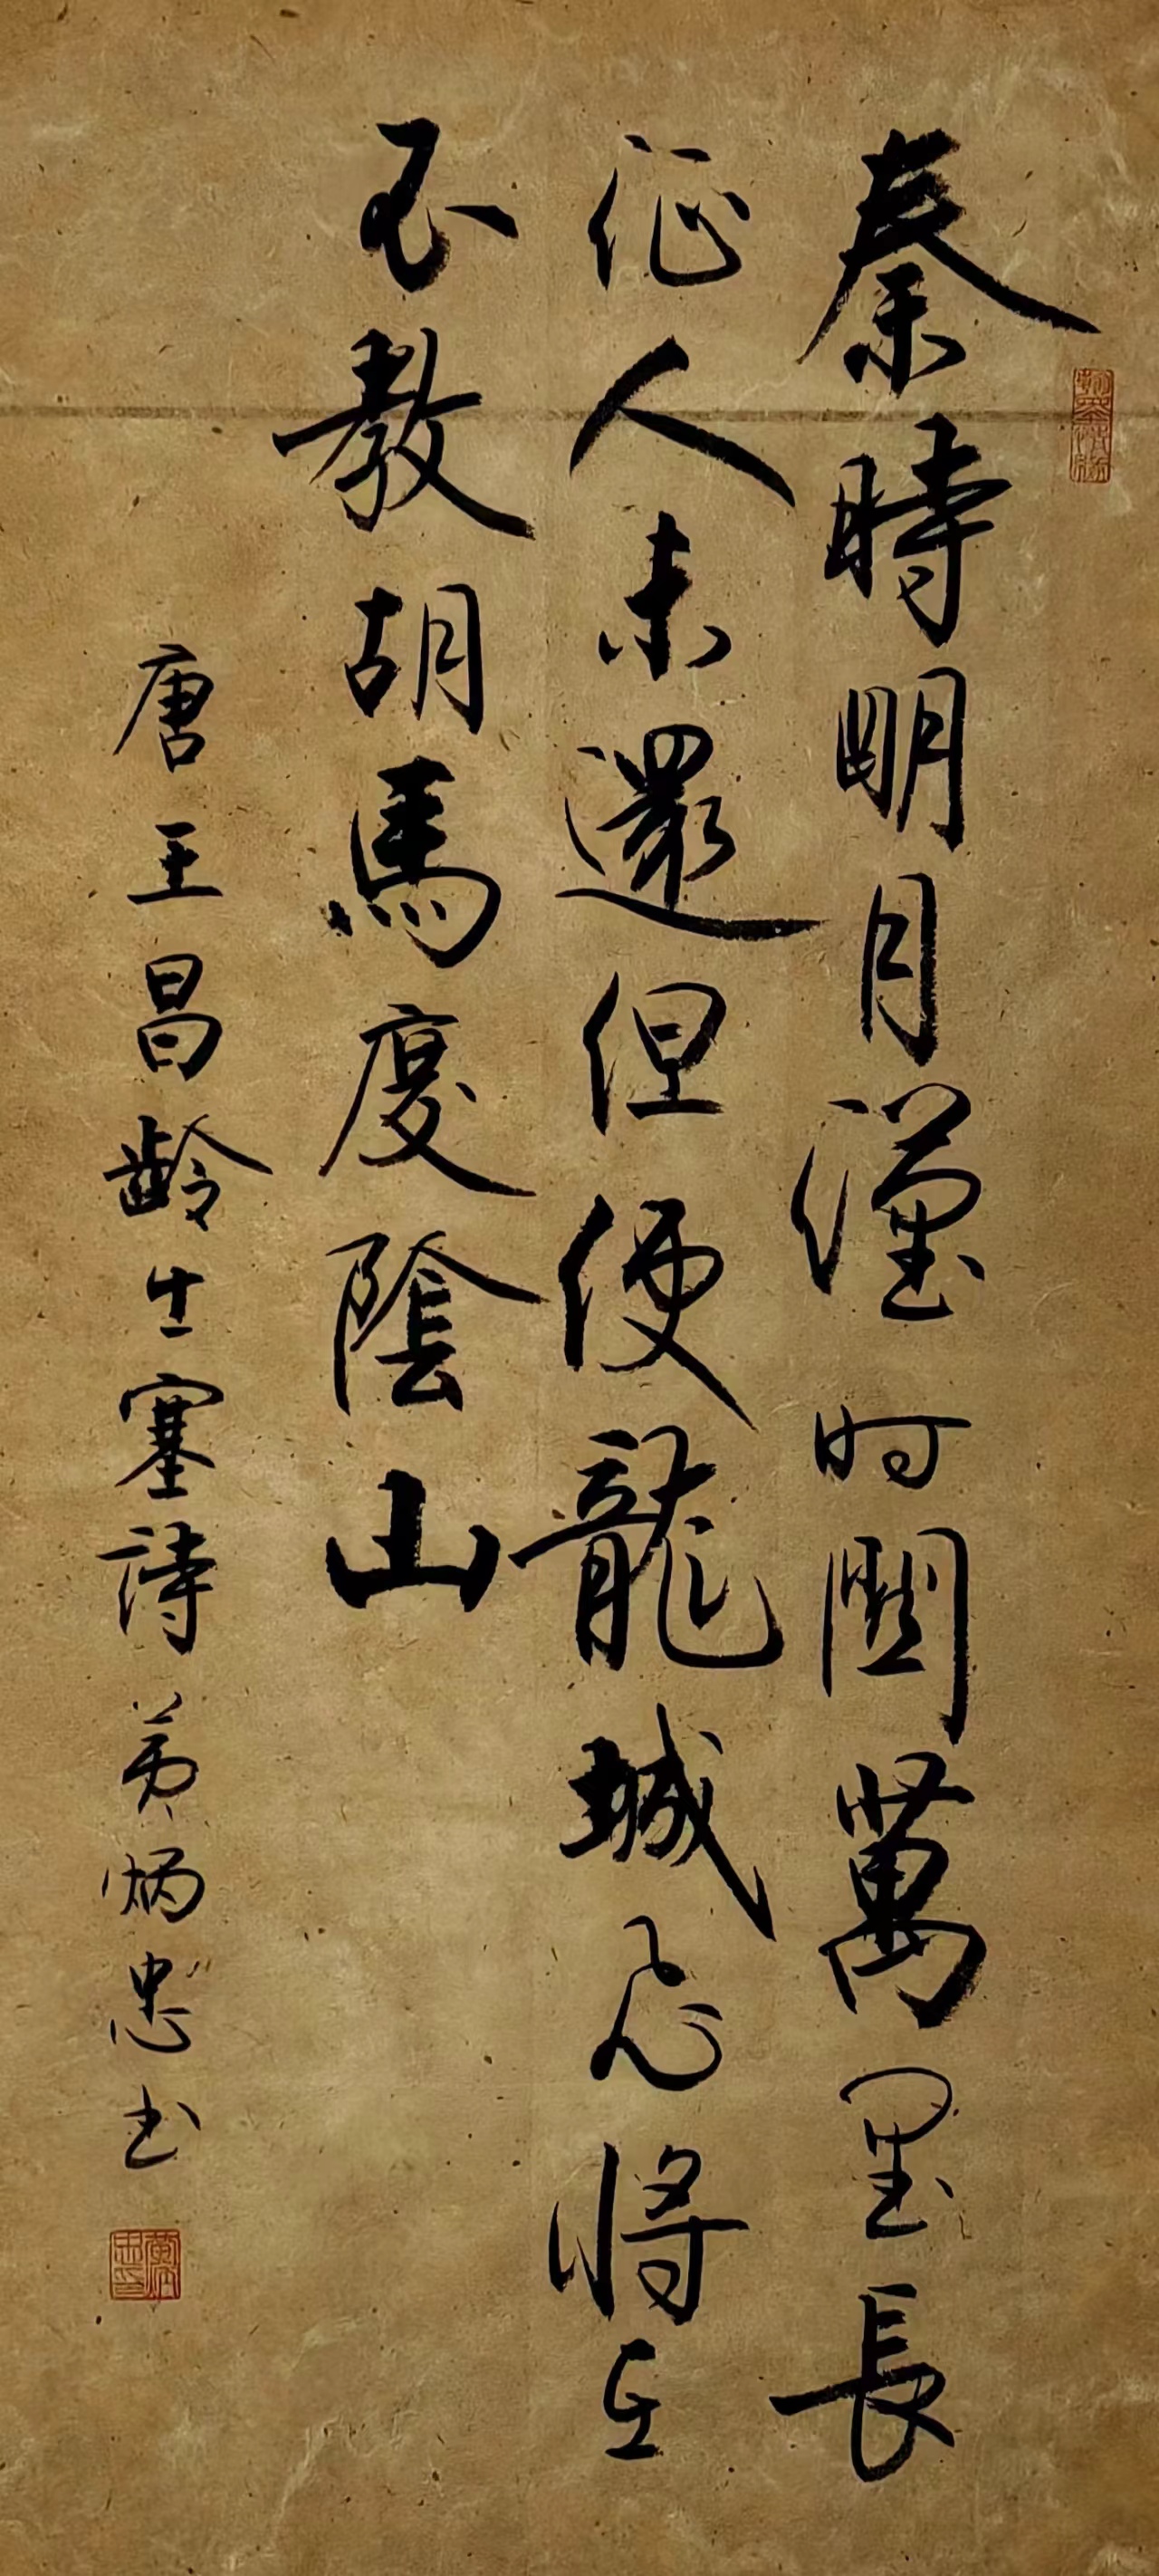 秦時明月漢时關萬里長
征人未還但使龍城飛將在
不教胡馬度陰山
唐王昌齡出塞詩 黄炳忠书